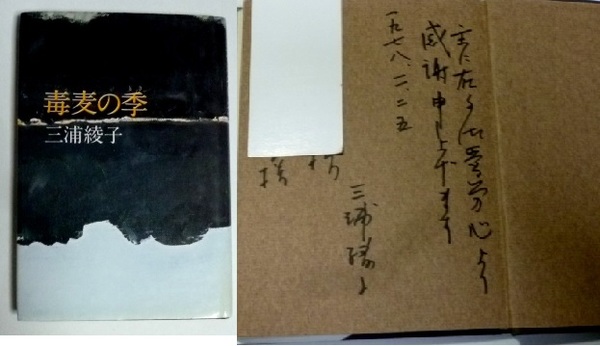 毒麦の季
三浦綾子
主に在る御愛労心より
感謝申し上げます
一九七八、一、二五
様
様
三浦綾子